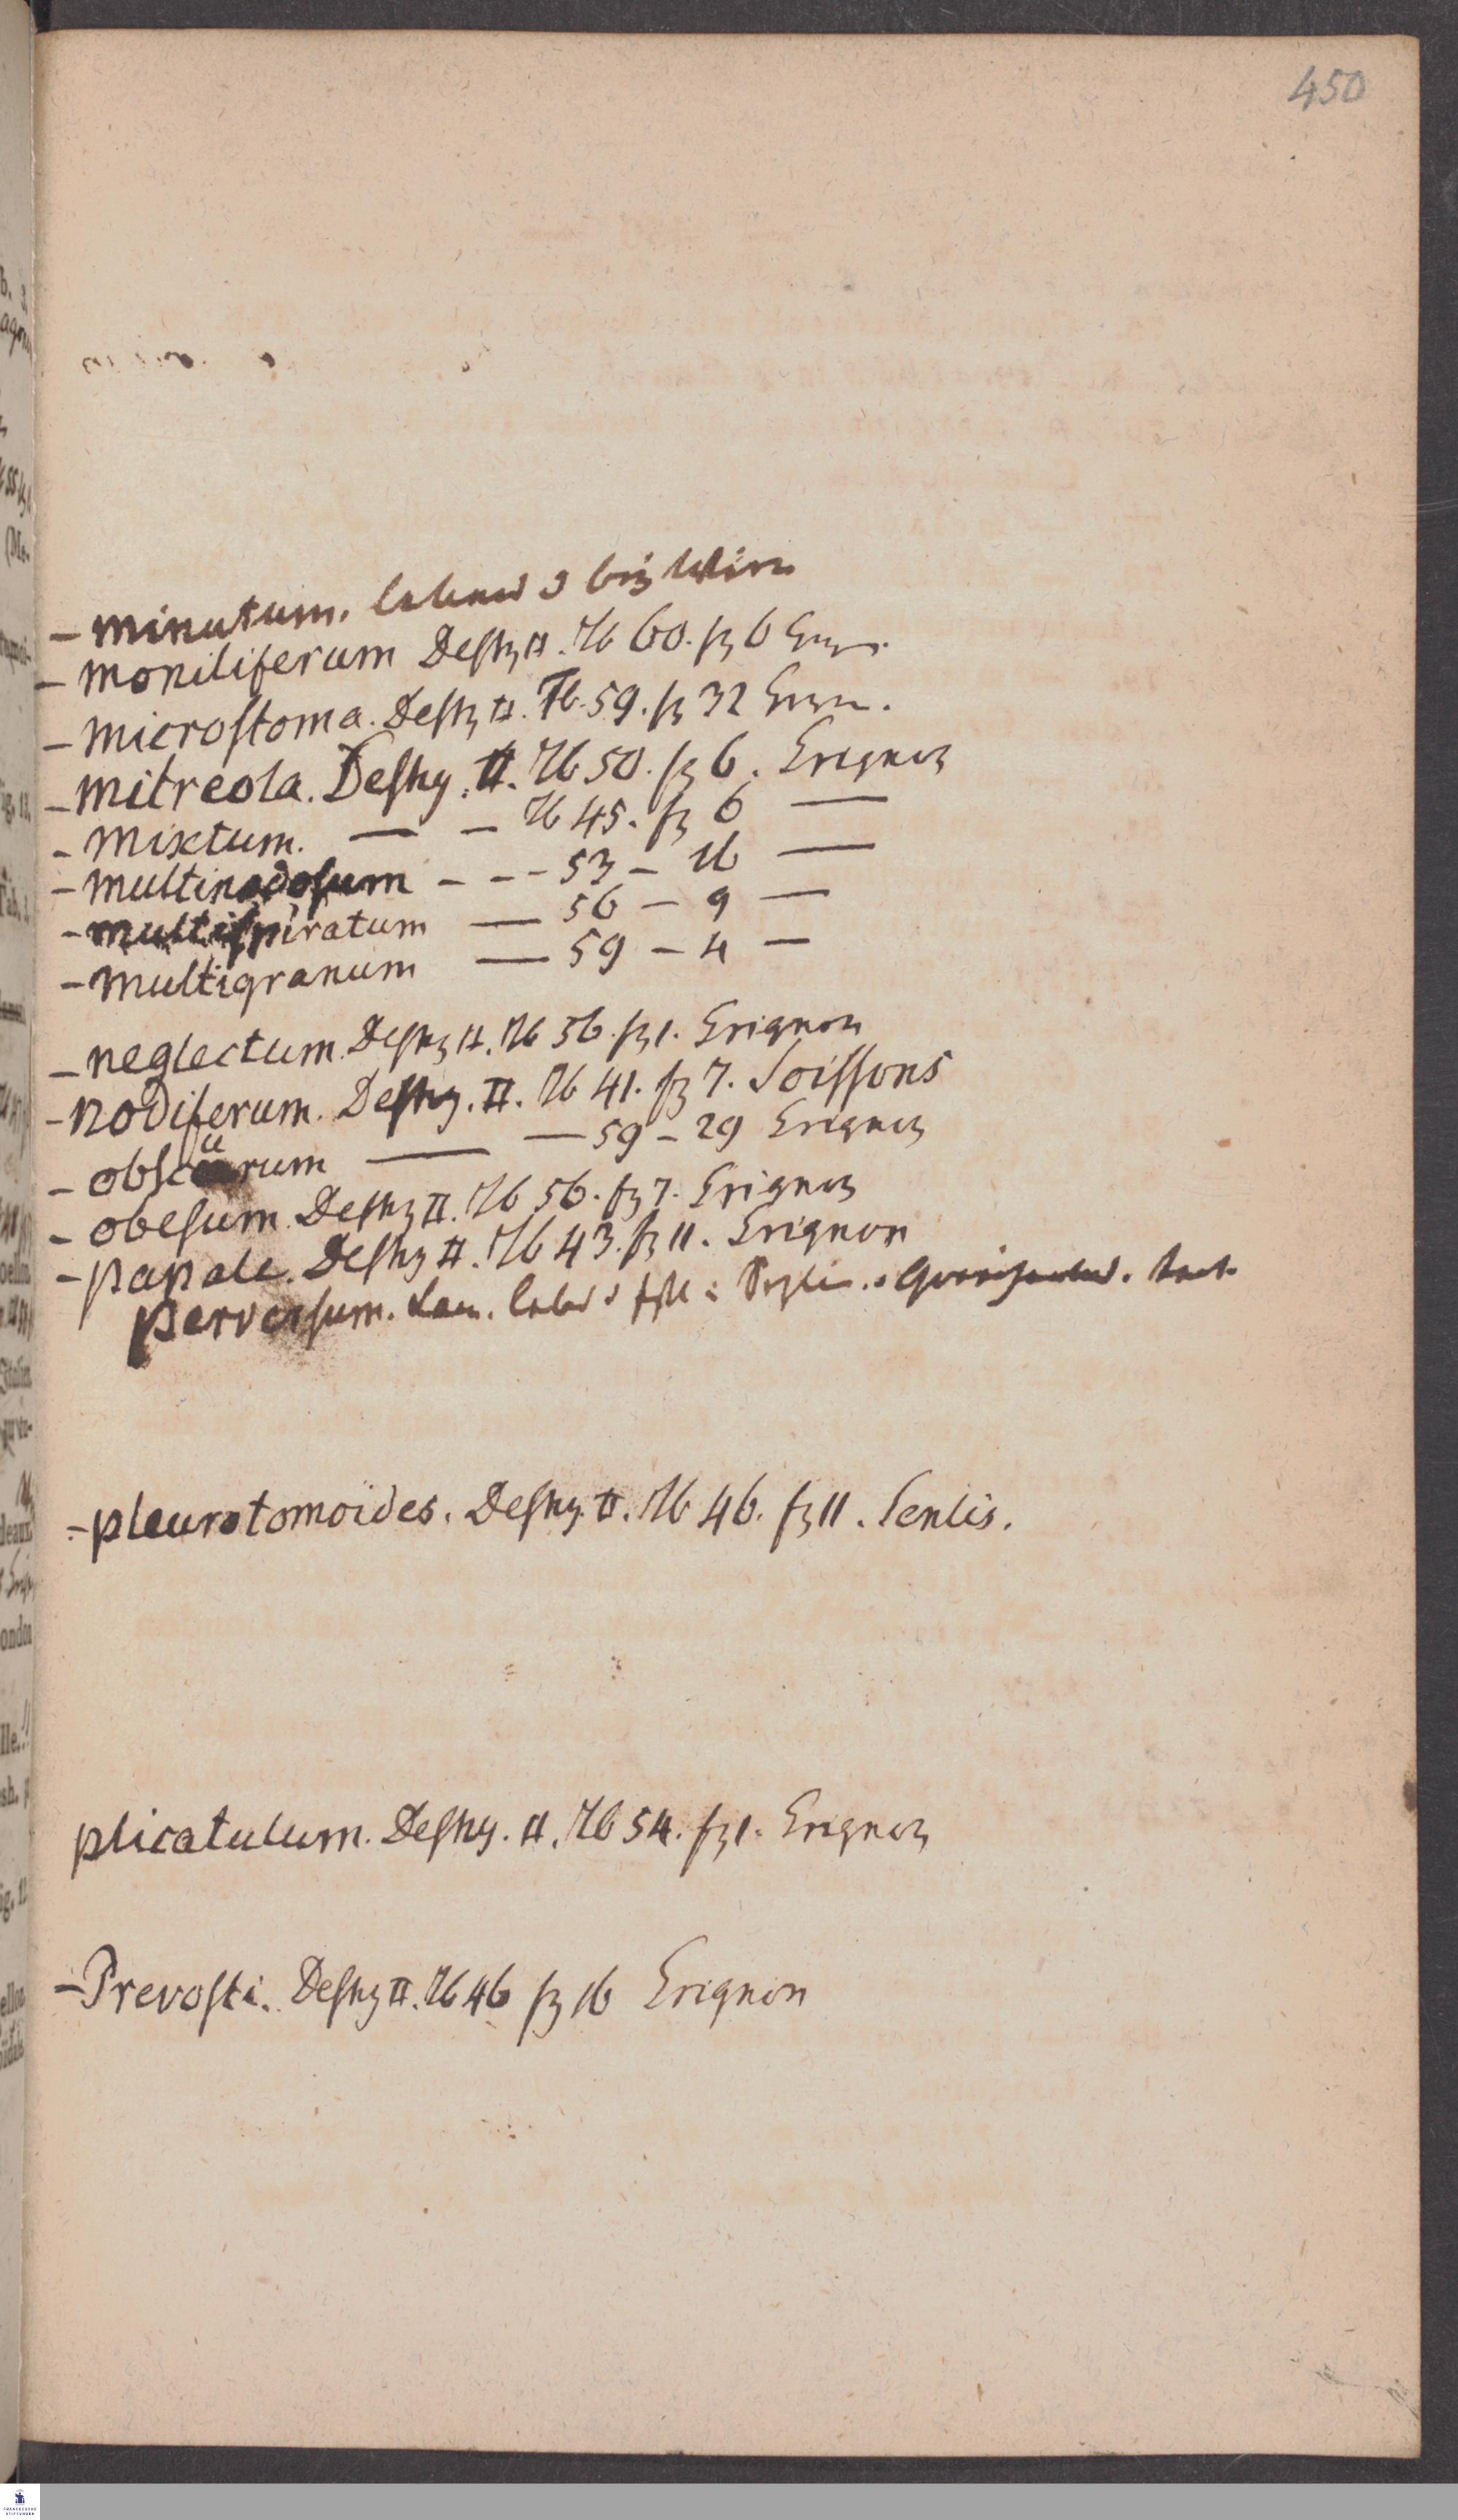 450
- minutum. lebend u bei Wien
- moniliferum Deshy II. Tb 60. fg 6 Grign.
- microstoma. Deshy II. Tb. 59. fg 32 Grign.
- mitreola. Deshy. II. Tb 50. fg 6. Grignon
- mixtum. — — Tb 45. fg 6 —
- multinodosum - - - 53 - 16 —
- multispiratum — 56 - 9 —
- multigranum — 59 - 4 —
- neglectum. Deshy II. Tb 56. fg 1. Grignon
- nodiferum. Deshy. II. Tb 41. fg 7. Soissons
- obscurum — — 59 - 29 Grignon
- obesum. Deshy II. Tb 56. fg 7. Grignon
- papale. Deshy II. Tb 43. fg 11. Grignon
perversum. Lam. lebd u
- pleurotomoïdes. Deshy. II. Tb 46. fg 11. Senlis.
plicatulum. Deshy. II. Tb 54. fg 1. Grignon
- Prevosti. Deshy II. Tb 46 fg 16 Grignon
FRANCKESCHE
STIFTUNGEN